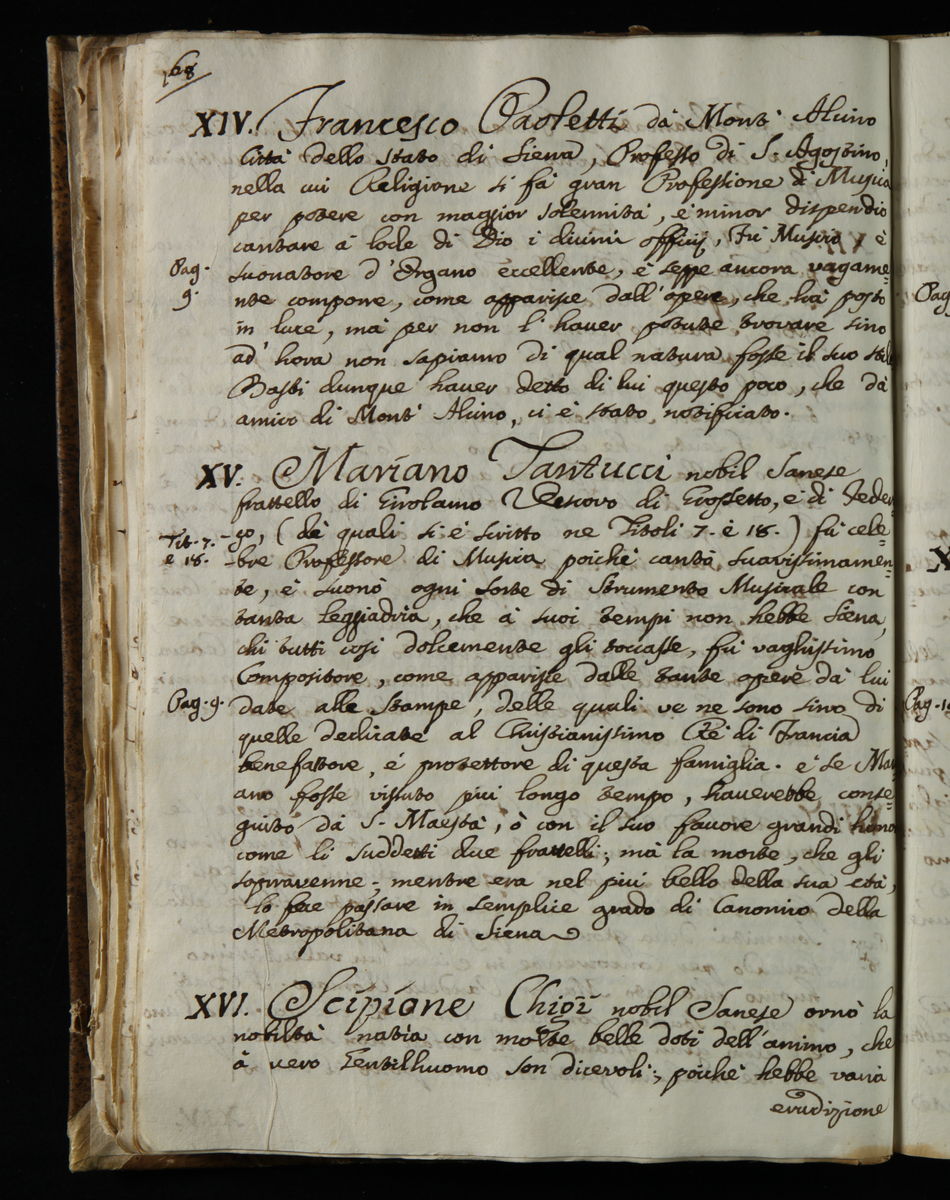 168
XIV. Francesco Paoletti dà Mont' Alcino
Città dello stato di Siena, Professo di S. Agostino,
nella cui Religione si fà gran Professione di Musica
per potere con maggior solennità, è minor dispendio
cantare à lode di Dio i divini officij, Fù Musico, è
Pag. 9. suonatore d'Organo eccellente, è seppe ancora vagame=
nte comporre, come apparisce dall'opere, che hà posto
in luce, mà per non l'haver potute trovare sino
ad' hora non sapiamo di qual natura fosse il suo stil
Basti dunque haver detto di lui questo poco, che dà
amico di Mont' Alcino, ci è stato notificato.
XV. Mariano Tantucci nobil Sanese
frattello di Girolamo Vescovo di Grossetto, è di Feder=
Tit. 7. è 18. =go, (de quali si è scritto ne Titoli 7. è 18.) fù cele=
=bre Professore di Musica poiche cantò suavissimamen=
te, è suonò ogni sorte di strumento Musicale con
tanta leggiadria, che à suoi tempi non hebbe Siena,
chi tutti così dolcemente gli toccasse, fù vaghissimo
Compositore, come apparisce dalle tante opere dà lui
Pag. 9. date alle stampe, delle quali ve ne sono sino di
quelle dedicate al Christianissimo Rè di Francia
benefattore, é protettore di questa famiglia. e se Mari
ano fosse vissuto più longo tempo, haverebbe conse=
guito dà S. Maestà, ò con il suo favore grandi honor
come li suddetti due frattelli; mà la morte, che gli
sopravenne; mentre era nel più bello della sua età,
lo fece passare in semplice grado di Canonico della
Metropolitana di Siena
XVI. Scipione Chigi nobil Sanese ornò la
nobiltà natia con molte belle doti dell'animo, che
à vero Gentilhuomo son dicevoli; poiche hebbe varia
erudizione